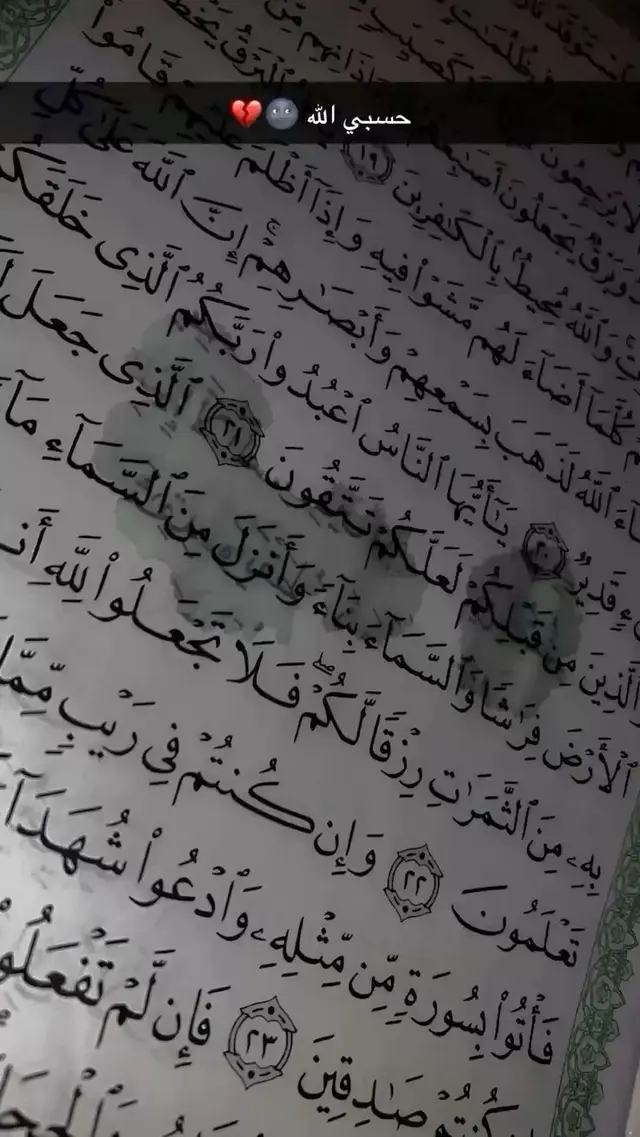 حسبي الله 🌚💔
مستوقد
ظلمت
كصيب
ءاذانهم من
لا يرجعون
ورعد وبرق يجعلون
البرق يخطف
١٩
والله محيط بالكفرين
كلما أضاء لهم مشوا فيه وإذا أظلم عليهم قاموا
شاء الله لذهب بسمعهم وأبصرهم إن الله على كل
شىء قدير ٢٠ يأيها الناس اعبدوا ربكم الذى خلقكم
والذين من قبلكم لعلكم تتقون ٢١ الذى جعل
الأرض فرشا والسماء بناء وأنزل من السماء ماء
به من الثمرت رزقا لكم فلا تجعلوا لله
تعلمون ٢٢ وإن كنتم فى ريب مما
فأتوا بسورة من مثله وادعوا شهداء
كنتم صدقين ٢٣ فإن لم تفعلوا